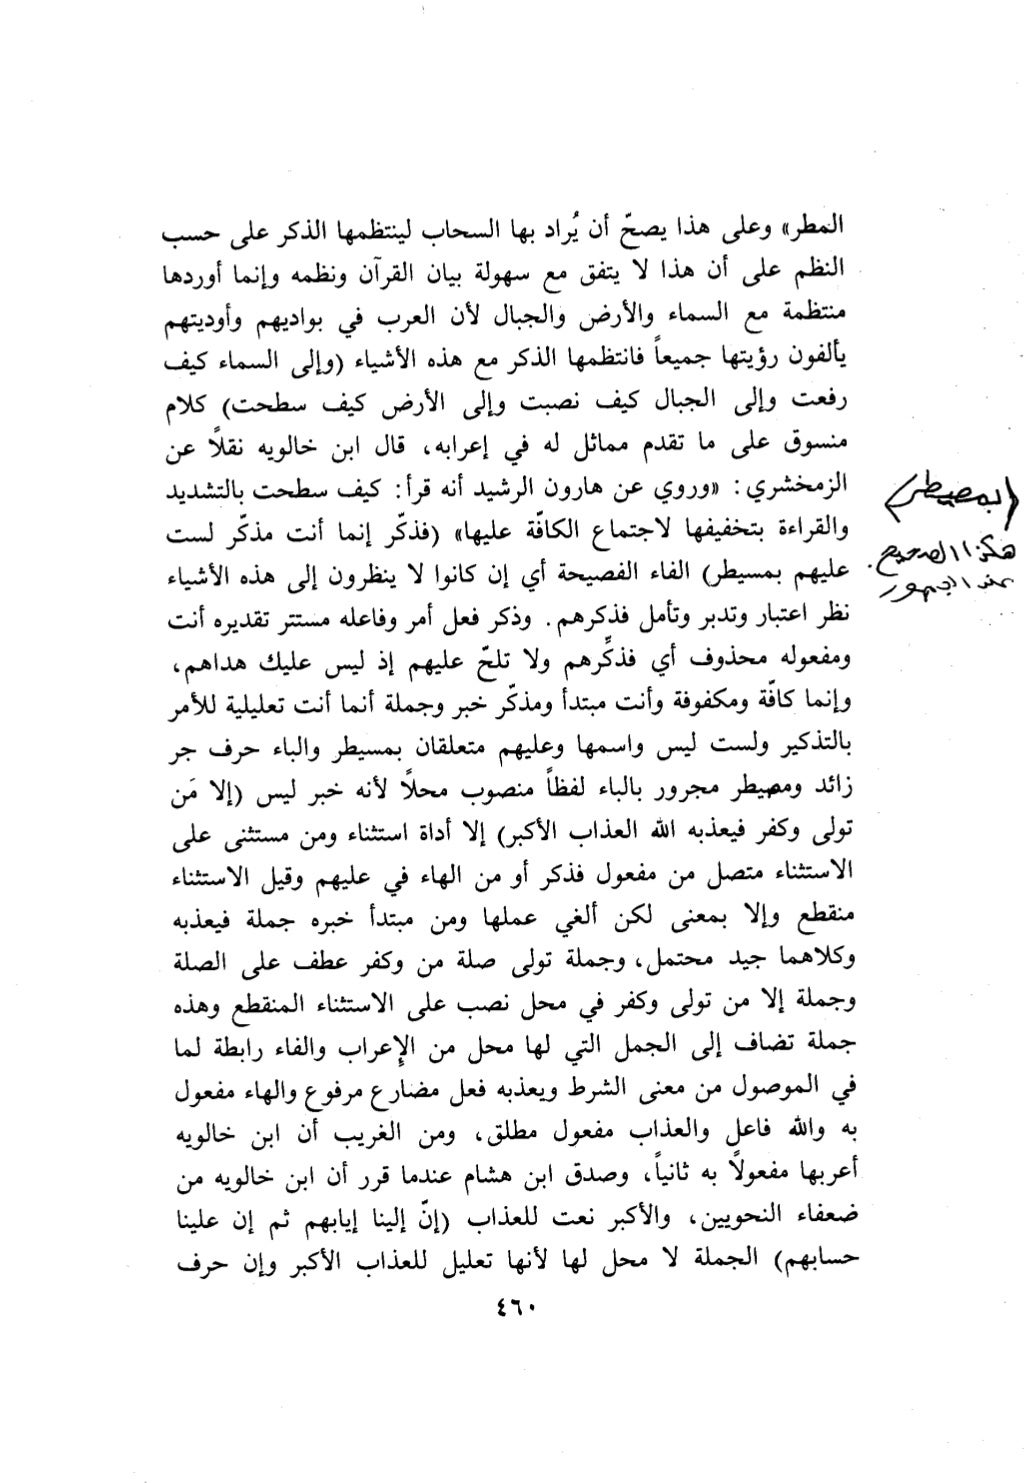 المطر» وعلى هذا يصحّ أن يُراد بها السحاب لينتظمها الذكر على حسب
النظم على أن هذا لا يتفق مع سهولة بيان القرآن ونظمه وإنما أوردها
منتظمة مع السماء والأرض والجبال لأن العرب في بواديهم وأوديتهم
يألفون رؤيتها جميعاً فانتظمها الذكر مع هذه الأشياء (وإلى السماء كيف
رفعت وإلى الجبال كيف نصبت وإلى الأرض كيف سطحت) كلام
منسوق على ما تقدم مماثل له في إعرابه، قال ابن خالويه نقلاً عن
الزمخشري: «وروي عن هارون الرشيد أنه قرأ: كيف سطحت بالتشديد
والقراءة بتخفيفها لاجتماع الكافّة عليها» (فذكّر إنما أنت مذكّر لست
عليهم بمسيطر) الفاء الفصيحة أي إن كانوا لا ينظرون إلى هذه الأشياء
نظر اعتبار وتدبر وتأمل فذكرهم. وذكر فعل أمر وفاعله مستتر تقديره أنت
ومفعوله محذوف أي فذكِّرهم ولا تلحّ عليهم إذ ليس عليك هداهم،
وإنما كافّة ومكفوفة وأنت مبتدأ ومذكّر خبر وجملة أنما أنت تعليلية للأمر
بالتذكير ولست ليس واسمها وعليهم متعلقان بمسيطر والباء حرف جر
زائد ومصيطر مجرور بالباء لفظاً منصوب محلاً لأنه خبر ليس (إلا مَن
تولى وكفر فيعذبه الله العذاب الأكبر) إلا أداة استثناء ومن مستثنى على
الاستثناء متصل من مفعول فذكر أو من الهاء في عليهم وقيل الاستثناء
منقطع وإلا بمعنى لكن ألغي عملها ومن مبتدأ خبره جملة فيعذبه
وكلاهما جيد محتمل، وجملة تولى صلة من وكفر عطف على الصلة
وجملة إلا من تولى وكفر في محل نصب على الاستثناء المنقطع وهذه
جملة تضاف إلى الجمل التي لها محل من الإعراب والفاء رابطة لما
في الموصول من معنى الشرط ويعذبه فعل مضارع مرفوع والهاء مفعول
به والله فاعل والعذاب مفعول مطلق، ومن الغريب أن ابن خالويه
أعربها مفعولاً به ثانياً، وصدق ابن هشام عندما قرر أن ابن خالويه من
ضعفاء النحويين، والأكبر نعت للعذاب (إنّ إلينا إيابهم ثم إن علينا
حسابهم) الجملة لا محل لها لأنها تعليل للعذاب الأكبر وإن حرف
٤٦٠
(بمصيطر)
هكذا الصحيح
عند الجمهور